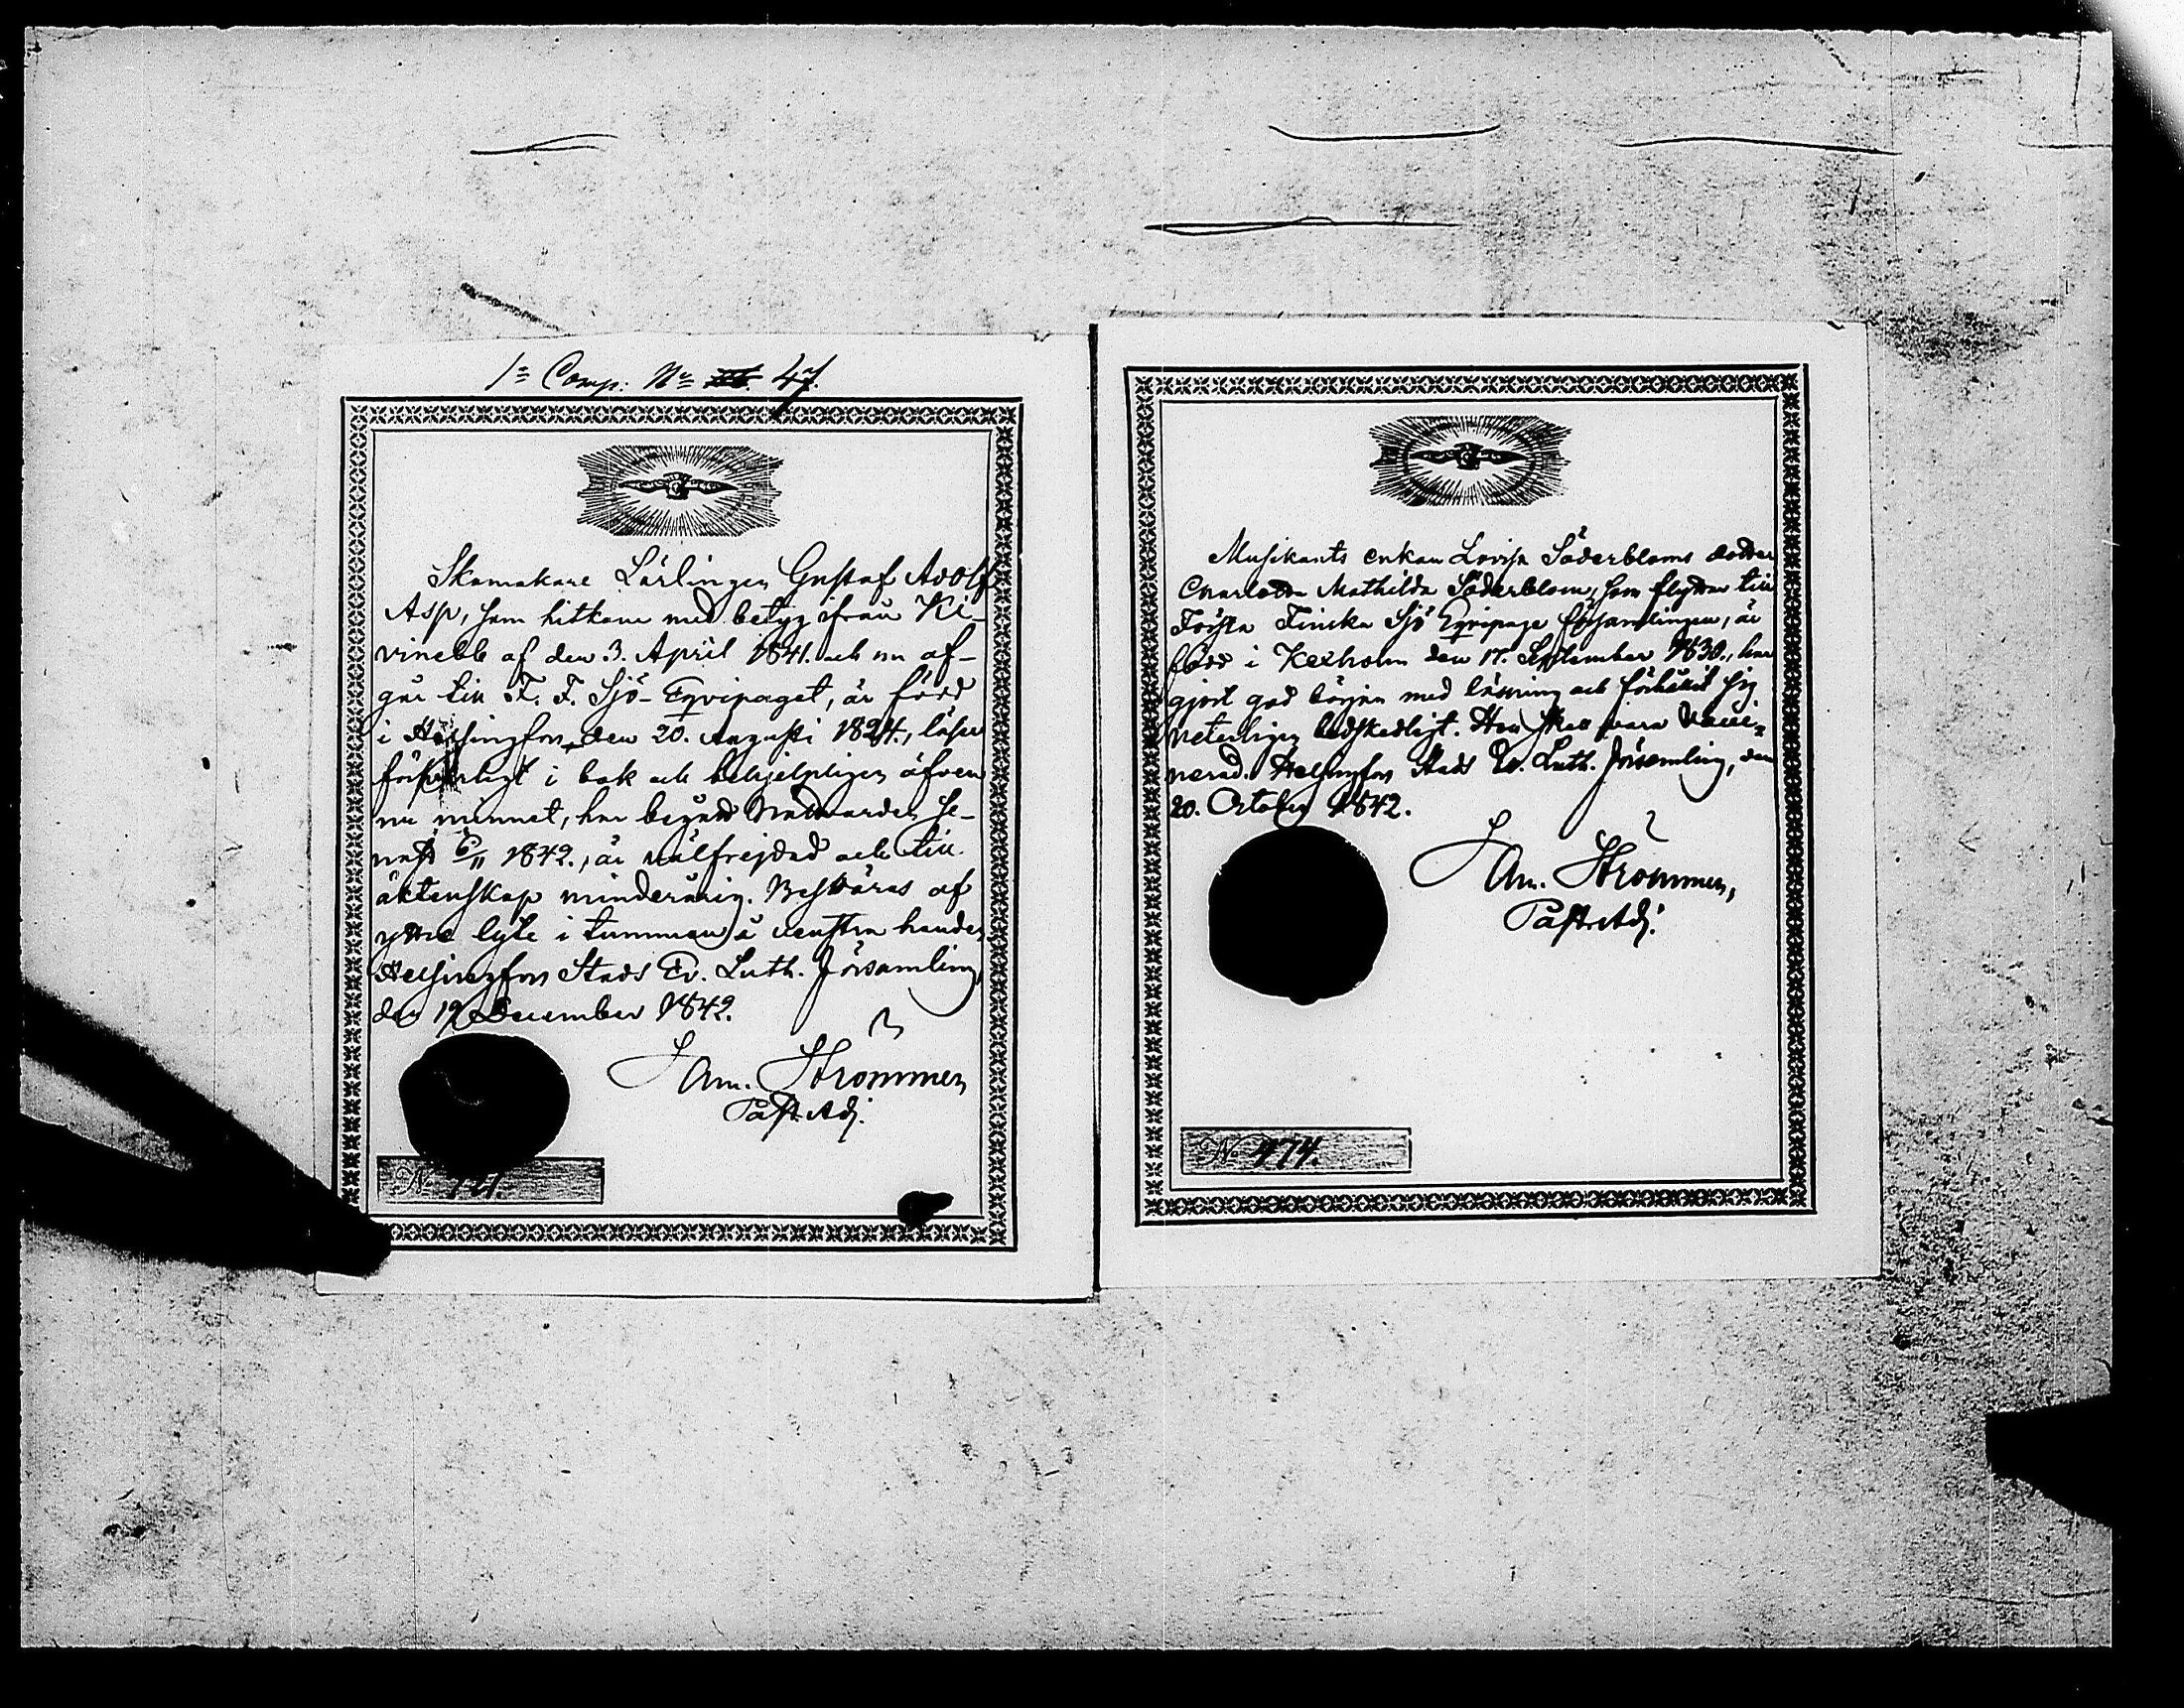 1:a Comp: No 47.
Skomakare Lärlingen Gustaf Adolf
Asp, som hitkom med betyg ifrån Ki-
vinebb af den 3. April 1841. och nu af-
går till F. F. Sjö-Eqvipaget, är född
i Helsingfors, den 20. Augusti 1824., läser
försvarligt i bok och behjelpligen äfven
ur minnet, har begådt Nattvarden se-
nast 6/11 1842., är välfrejdad och till
äktenskap minderårig. Besväras af
yttre lyte i tummen å venstra handen.
Helsingfors Stads Ev. Luth. Församling,
den 19 December 1842.
Sam. Strömmer
Past. Adj.
No 121.
Musikants enkan Lovisa Söderbloms dotter
Charlotta Mathilda Söderblom, som flyttar till
Första Finska Sjö Eqvipage församlingen, är
född i Kexholm den 17. September 1830., har
gjort god början med läsning och förhållit sig
veterligen beskedligt. Hon skall vara vacci-
nerad. Helsingfors Stads Ev. Luth. Församling, den
20. October 1842.
Sam. Strömmer,
Past. Adj.
No 474.